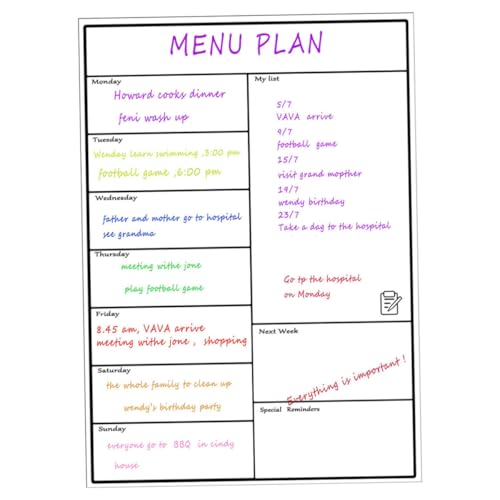 MENU PLAN
Monday
Howard cooks dinner
feni wash up
Tuesday
Wenday learn swimming ,3:00 pm
football game ,6:00 pm
Wednesday
father and mother go to hospital
see grandma
Thursday
meeting withe jone
play football game
Friday
8.45 am, VAVA arrive
meeting withe jone , shopping
Saturday
the whole family to clean up
wendy's birthday party
Sunday
everyone go to BBQ in cindy
house
My list
5/7
VAVA arrive
9/7
football game
15/7
visit grand mopther
19/7
wendy birthday
23/7
Take a day to the hospital
Go tp the hospital
on Monday
Next Week
Everything is important !
Special Reminders